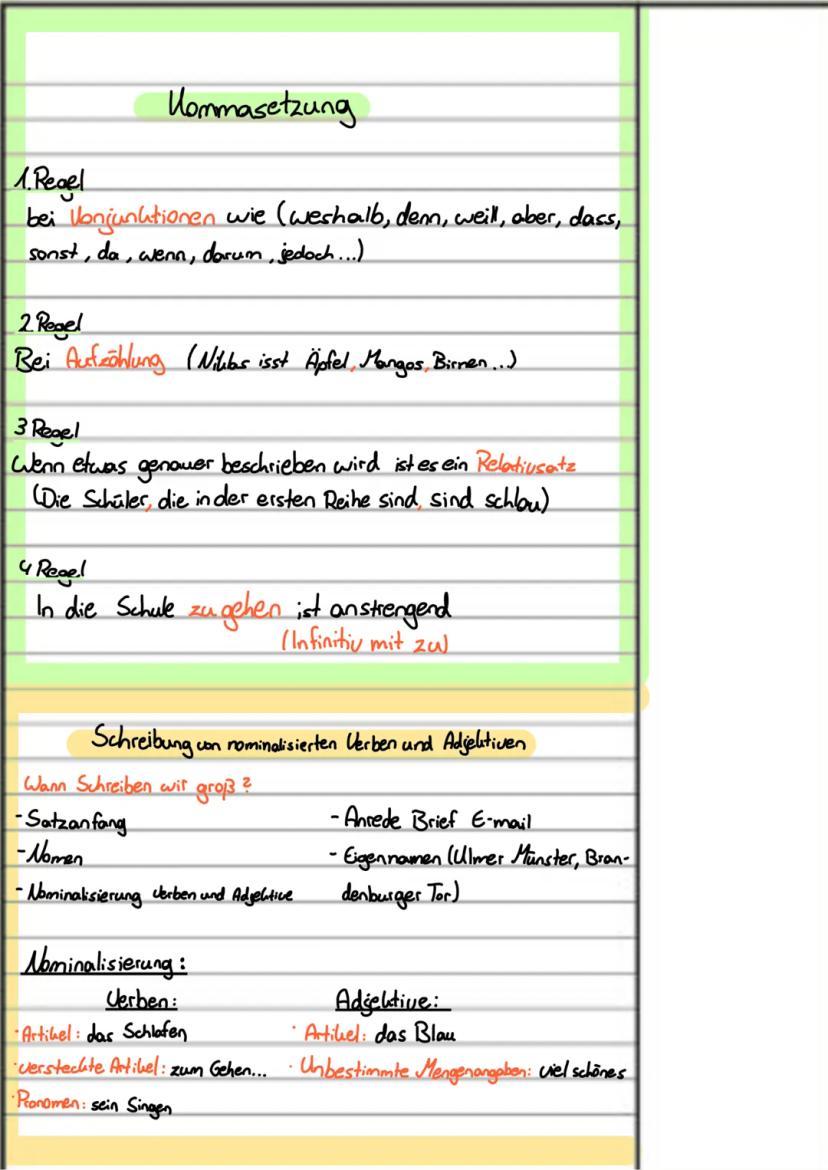 Kommasetzung
1. Regel
bei Konjunktionen wie (weshalb, denn, weil, aber, dass,
sonst, da, wenn, darum, jedoch...)
2 Regel
Bei Aufzählung (Niklas isst Äpfel, Mangos, Birnen...)
3 Regel
Wenn etwas genauer beschrieben wird ist es ein Relativsatz
(Die Schüler, die in der ersten Reihe sind, sind schlau)
4 Regel
In die Schule zu gehen ist anstrengend
(Infinitiv mit zu)
Schreibung von nominalisierten Verben und Adjektiven
Wann Schreiben wir groß?
- Satzanfang
- Nomen
- Nominalisierung Verben und Adjektive
- Anrede Brief E-mail
- Eigennamen (Ulmer Münster, Bran-
denburger Tor)
Nominalisierung:
Verben:
· Artikel: das Schlafen
· versteckte Artikel: zum Gehen...
· Pronomen: sein Singen
Adjektive:
· Artikel: das Blau
· Unbestimmte Mengenangaben: viel schönes